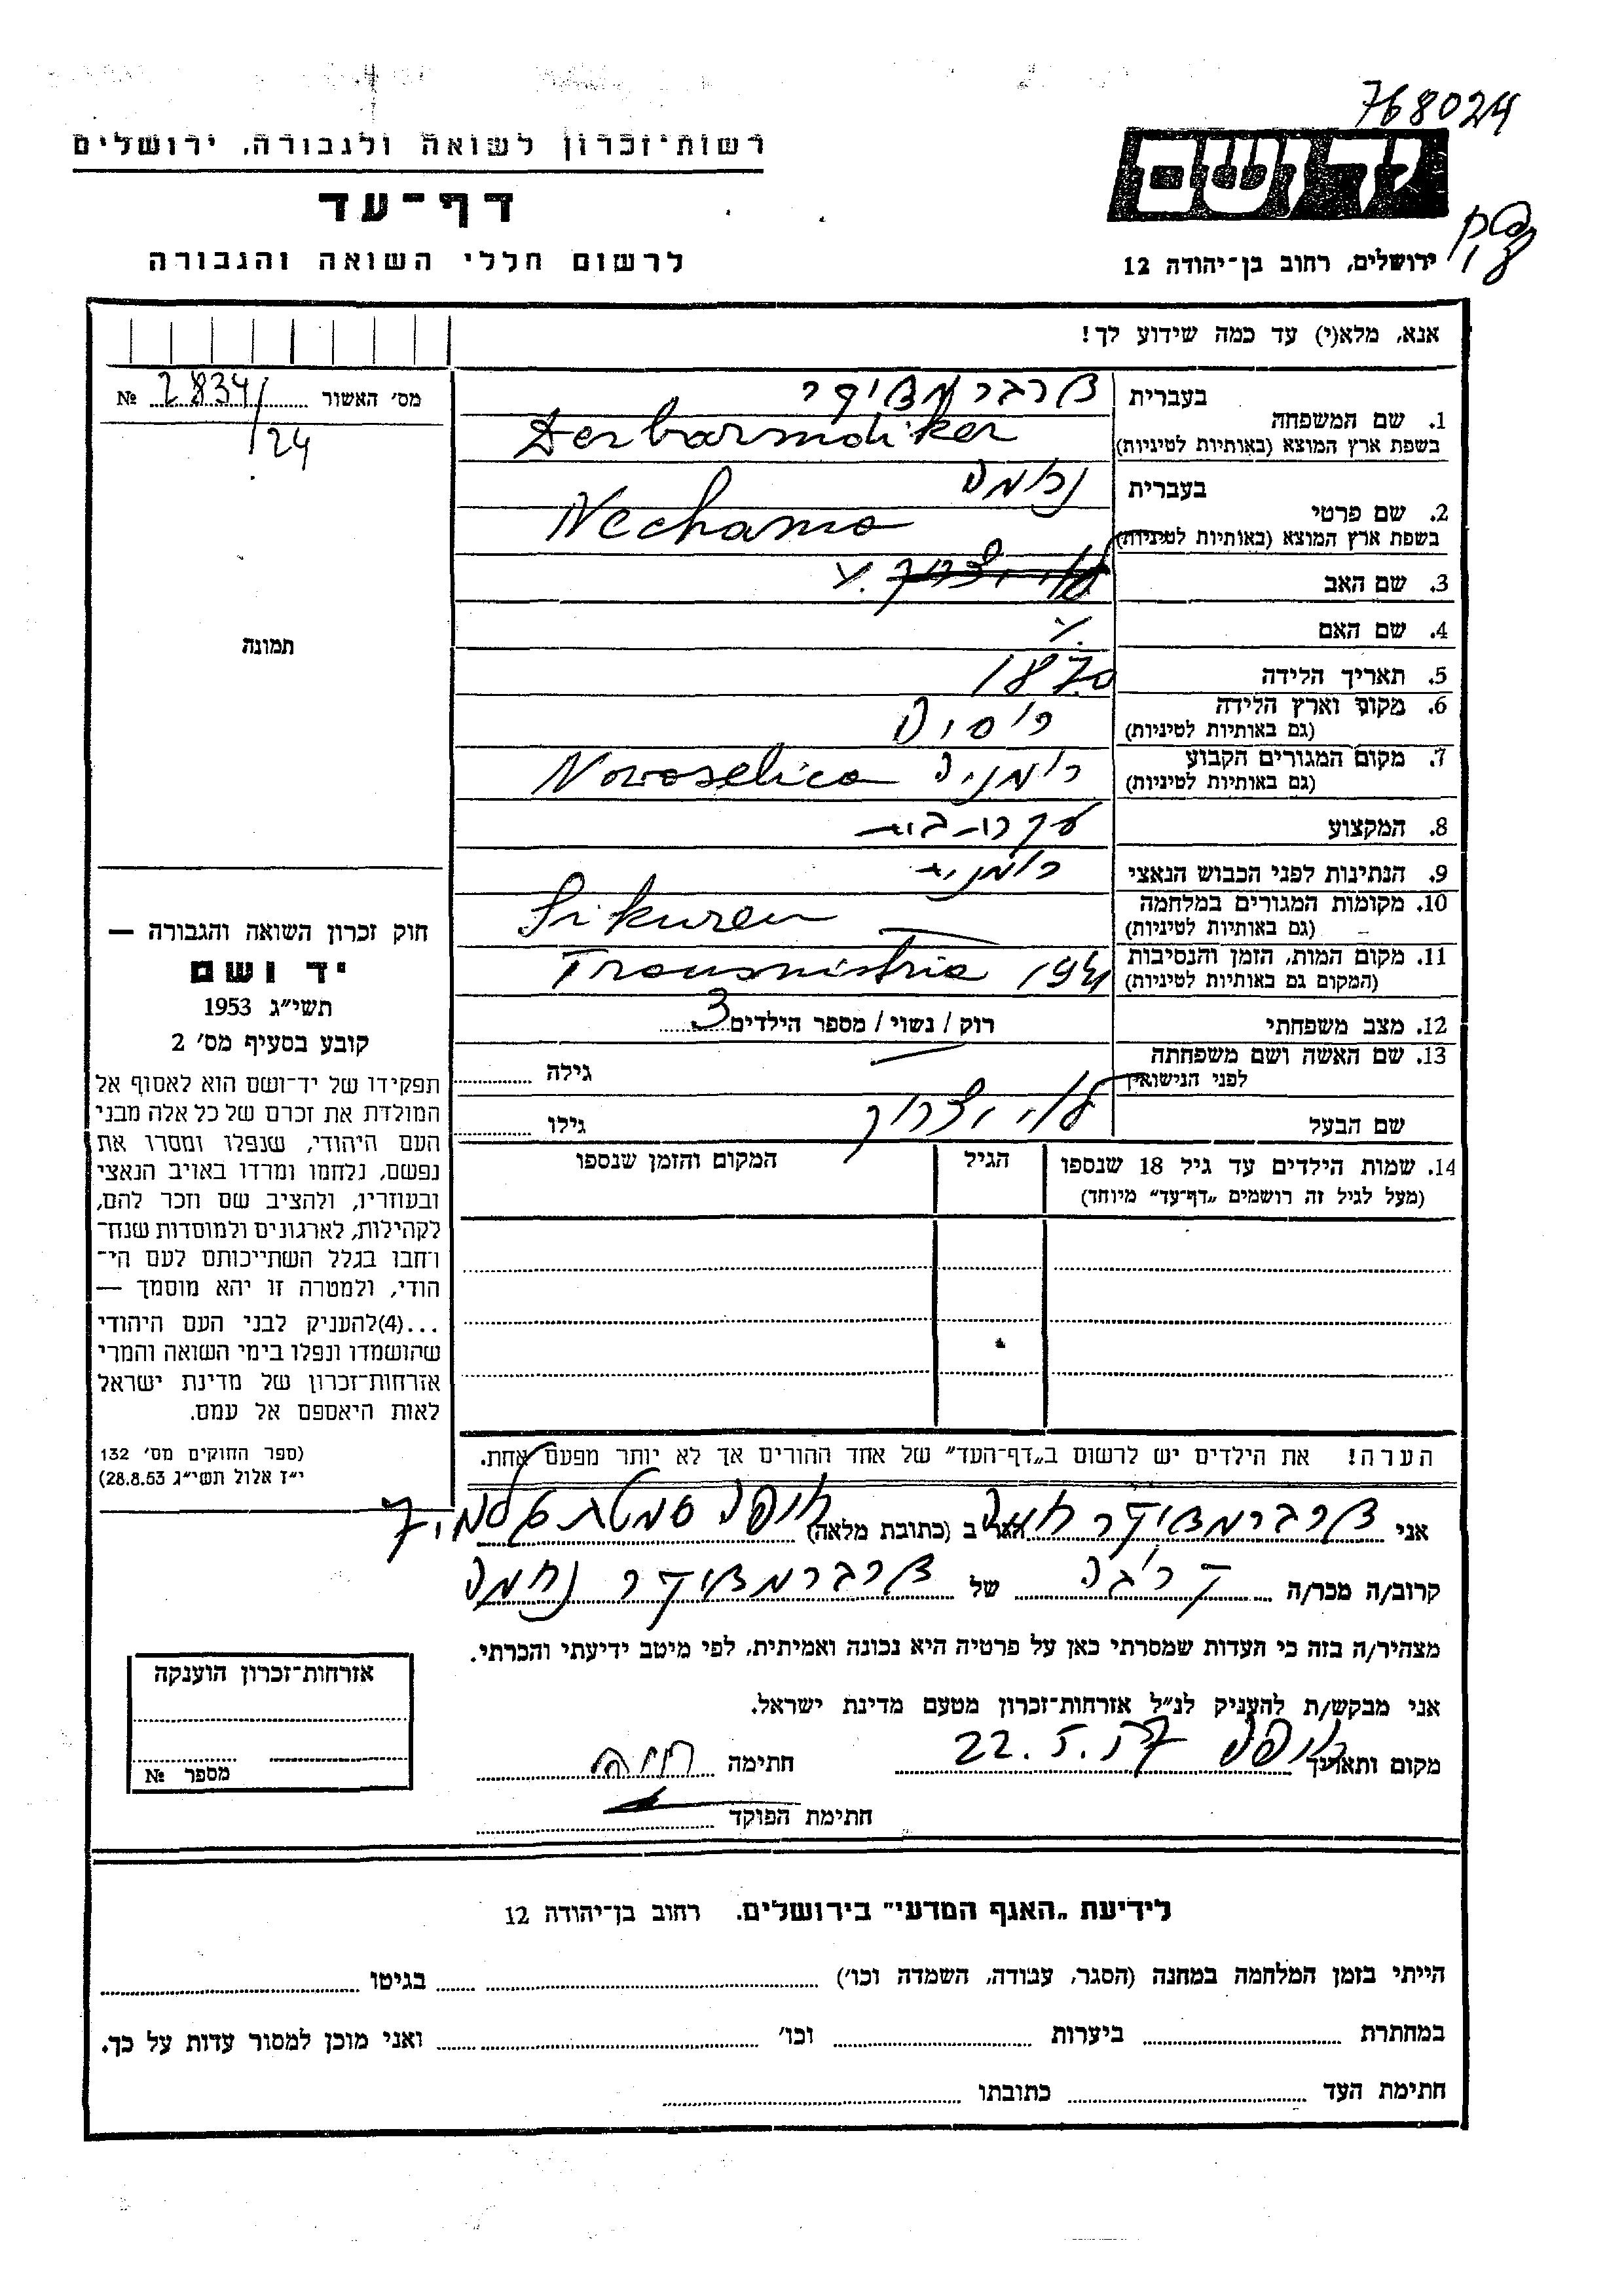 768024
רשות־זכרון לשואה ולגבורה, ירושלים
יד ושם
דף־עד
לרשום חללי השואה והגבורה
ירושלים, רחוב בן־יהודה 12
אנא, מלא(י) עד כמה שידוע לך!
מס׳ האשור 2834/24 №
1. שם המשפחה
בעברית דרברמדיקר
בשפת ארץ המוצא (באותיות לטיניות) Derbarmdiker
2. שם פרטי
בעברית נחמה
בשפת ארץ המוצא (באותיות לטיניות) Nechama
3. שם האב לוי יצחק
4. שם האם
5. תאריך הלידה 1870
6. מקום וארץ הלידה רוסיה
(גם באותיות לטיניות)
7. מקום המגורים הקבוע רומניה Novoselica
(גם באותיות לטיניות)
8. המקצוע עקרת־בית
9. הנתינות לפני הכבוש הנאצי רומנית
10. מקומות המגורים במלחמה Sikuren
(גם באותיות לטיניות)
11. מקום המות, הזמן והנסיבות Transnistria 1941
(המקום גם באותיות לטיניות)
12. מצב משפחתי רוק / נשוי / מספר הילדים 3
13. שם האשה ושם משפחתה
לפני הנישואין
גילה
שם הבעל לוי יצחק
גילו
14. שמות הילדים עד גיל 18 שנספו
(מעל לגיל זה רושמים „דף־עד” מיוחד)
הגיל
המקום והזמן שנספו
הערה! את הילדים יש לרשום ב„דף־העד” של אחד ההורים אך לא יותר מפעם אחת.
תמונה
חוק זכרון השואה והגבורה —
יד ושם
תשי״ג 1953
קובע בסעיף מס׳ 2
תפקידו של יד־ושם הוא לאסוף אל
המולדת את זכרם של כל אלה מבני
העם היהודי, שנפלו ומסרו את
נפשם, נלחמו ומרדו באויב הנאצי
ובעוזריו, ולהציב שם וזכר להם,
לקהילות, לארגונים ולמוסדות שנח־
רבו בגלל השתייכותם לעם הי־
הודי, ולמטרה זו יהא מוסמך —
...(4)להעניק לבני העם היהודי
שהושמדו ונפלו בימי השואה והמרי
אזרחות־זכרון של מדינת ישראל
לאות היאספם אל עמם.
(ספר החוקים מס׳ 132
י״ז אלול תשי״ג 28.8.53)
אני דרברמדיקר חוה הגר ב (כתובת מלאה) חיפה סמטת
קרוב/ה מכר/ה קרובה של דרברמדיקר נחמה
מצהיר/ה בזה כי העדות שמסרתי כאן על פרטיה היא נכונה ואמיתית, לפי מיטב ידיעתי והכרתי.
אני מבקש/ת להעניק לנ״ל אזרחות־זכרון מטעם מדינת ישראל.
מקום ותאריך חיפה 22.5.57 חתימה חוה
חתימת הפוקד
אזרחות־זכרון הוענקה
מספר №
לידיעת „האגף המדעי” בירושלים. רחוב בן־יהודה 12
הייתי בזמן המלחמה במחנה (הסגר, עבודה, השמדה וכו׳) בגיטו
במחתרת ביערות וכו׳ ואני מוכן למסור עדות על כך.
חתימת העד כתובתו